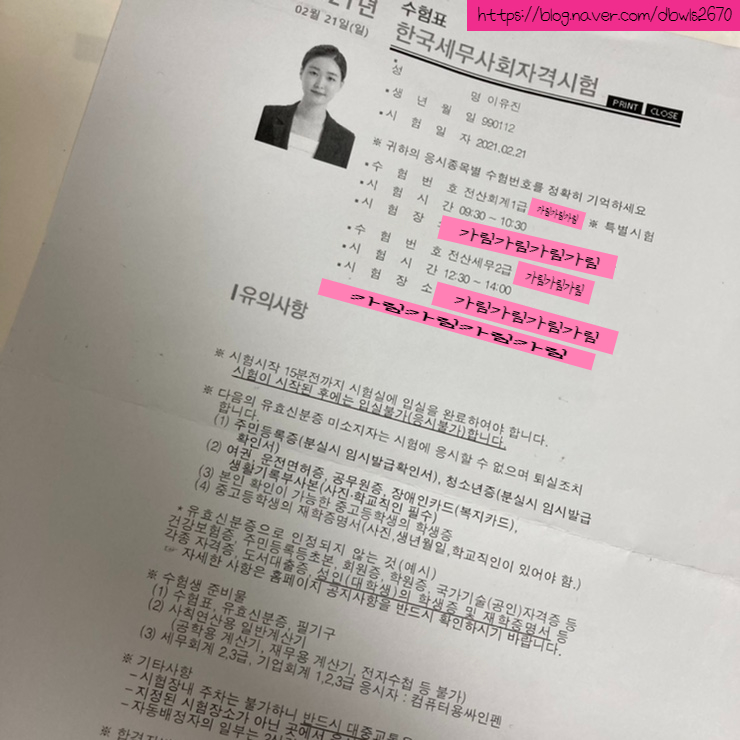 https://blog.naver.com/dbwls2670
21년
02월 21일(일)
수험표
한국세무사회자격시험
PRINT CLOSE
• 성 명 이유진
• 생 년 월 일 990112
• 시 험 일 자 2021.02.21
※ 귀하의 응시종목별 수험번호를 정확히 기억하세요
• 수 험 번 호 전산회계1급 가림가림가림 ※ 특별시험
• 시 험 시 간 09:30 ~ 10:30
• 시 험 장 가림가림가림가림
• 수 험 번 호 전산세무2급 가림가림가림
• 시 험 시 간 12:30 ~ 14:00
• 시 험 장 소 가림가림가림가림
가림가림가림가림
유의사항
※ 시험시작 15분전까지 시험실에 입실을 완료하여야 합니다.
시험이 시작된 후에는 입실불가(응시불가)합니다.
※ 다음의 유효신분증 미소지자는 시험에 응시할 수 없으며 퇴실조치
합니다.
(1) 주민등록증(분실시 임시발급확인서), 청소년증(분실시 임시발급
확인서)
(2) 여권, 운전면허증, 공무원증, 장애인카드(복지카드),
생활기록부사본(사진·학교직인 필수)
(3) 본인 확인이 가능한 중고등학생의 학생증
(4) 중고등학생의 재학증명서(사진,생년월일,학교직인이 있어야 함.)
* 유효신분증으로 인정되지 않는 것(예시)
건강보험증, 주민등록등초본, 회원증, 학원증, 국가기술(공인)자격증 등
각종 자격증, 도서대출증, 성인(대학생)의 학생증 및 재학증명서 등
☞ 자세한 사항은 홈페이지 공지사항을 반드시 확인하시기 바랍니다.
※ 수험생 준비물
(1) 수험표, 유효신분증, 필기구
(2) 사칙연산용 일반계산기
(공학용 계산기, 재무용 계산기, 전자수첩 등 불가)
(3) 세무회계 2,3급, 기업회계 1,2,3급 응시자 : 컴퓨터용싸인펜
※ 기타사항
- 시험장내 주차는 불가하니 반드시 대중교통
- 지정된 시험장소가 아닌 곳에서
- 자동배정자의 일부는
※